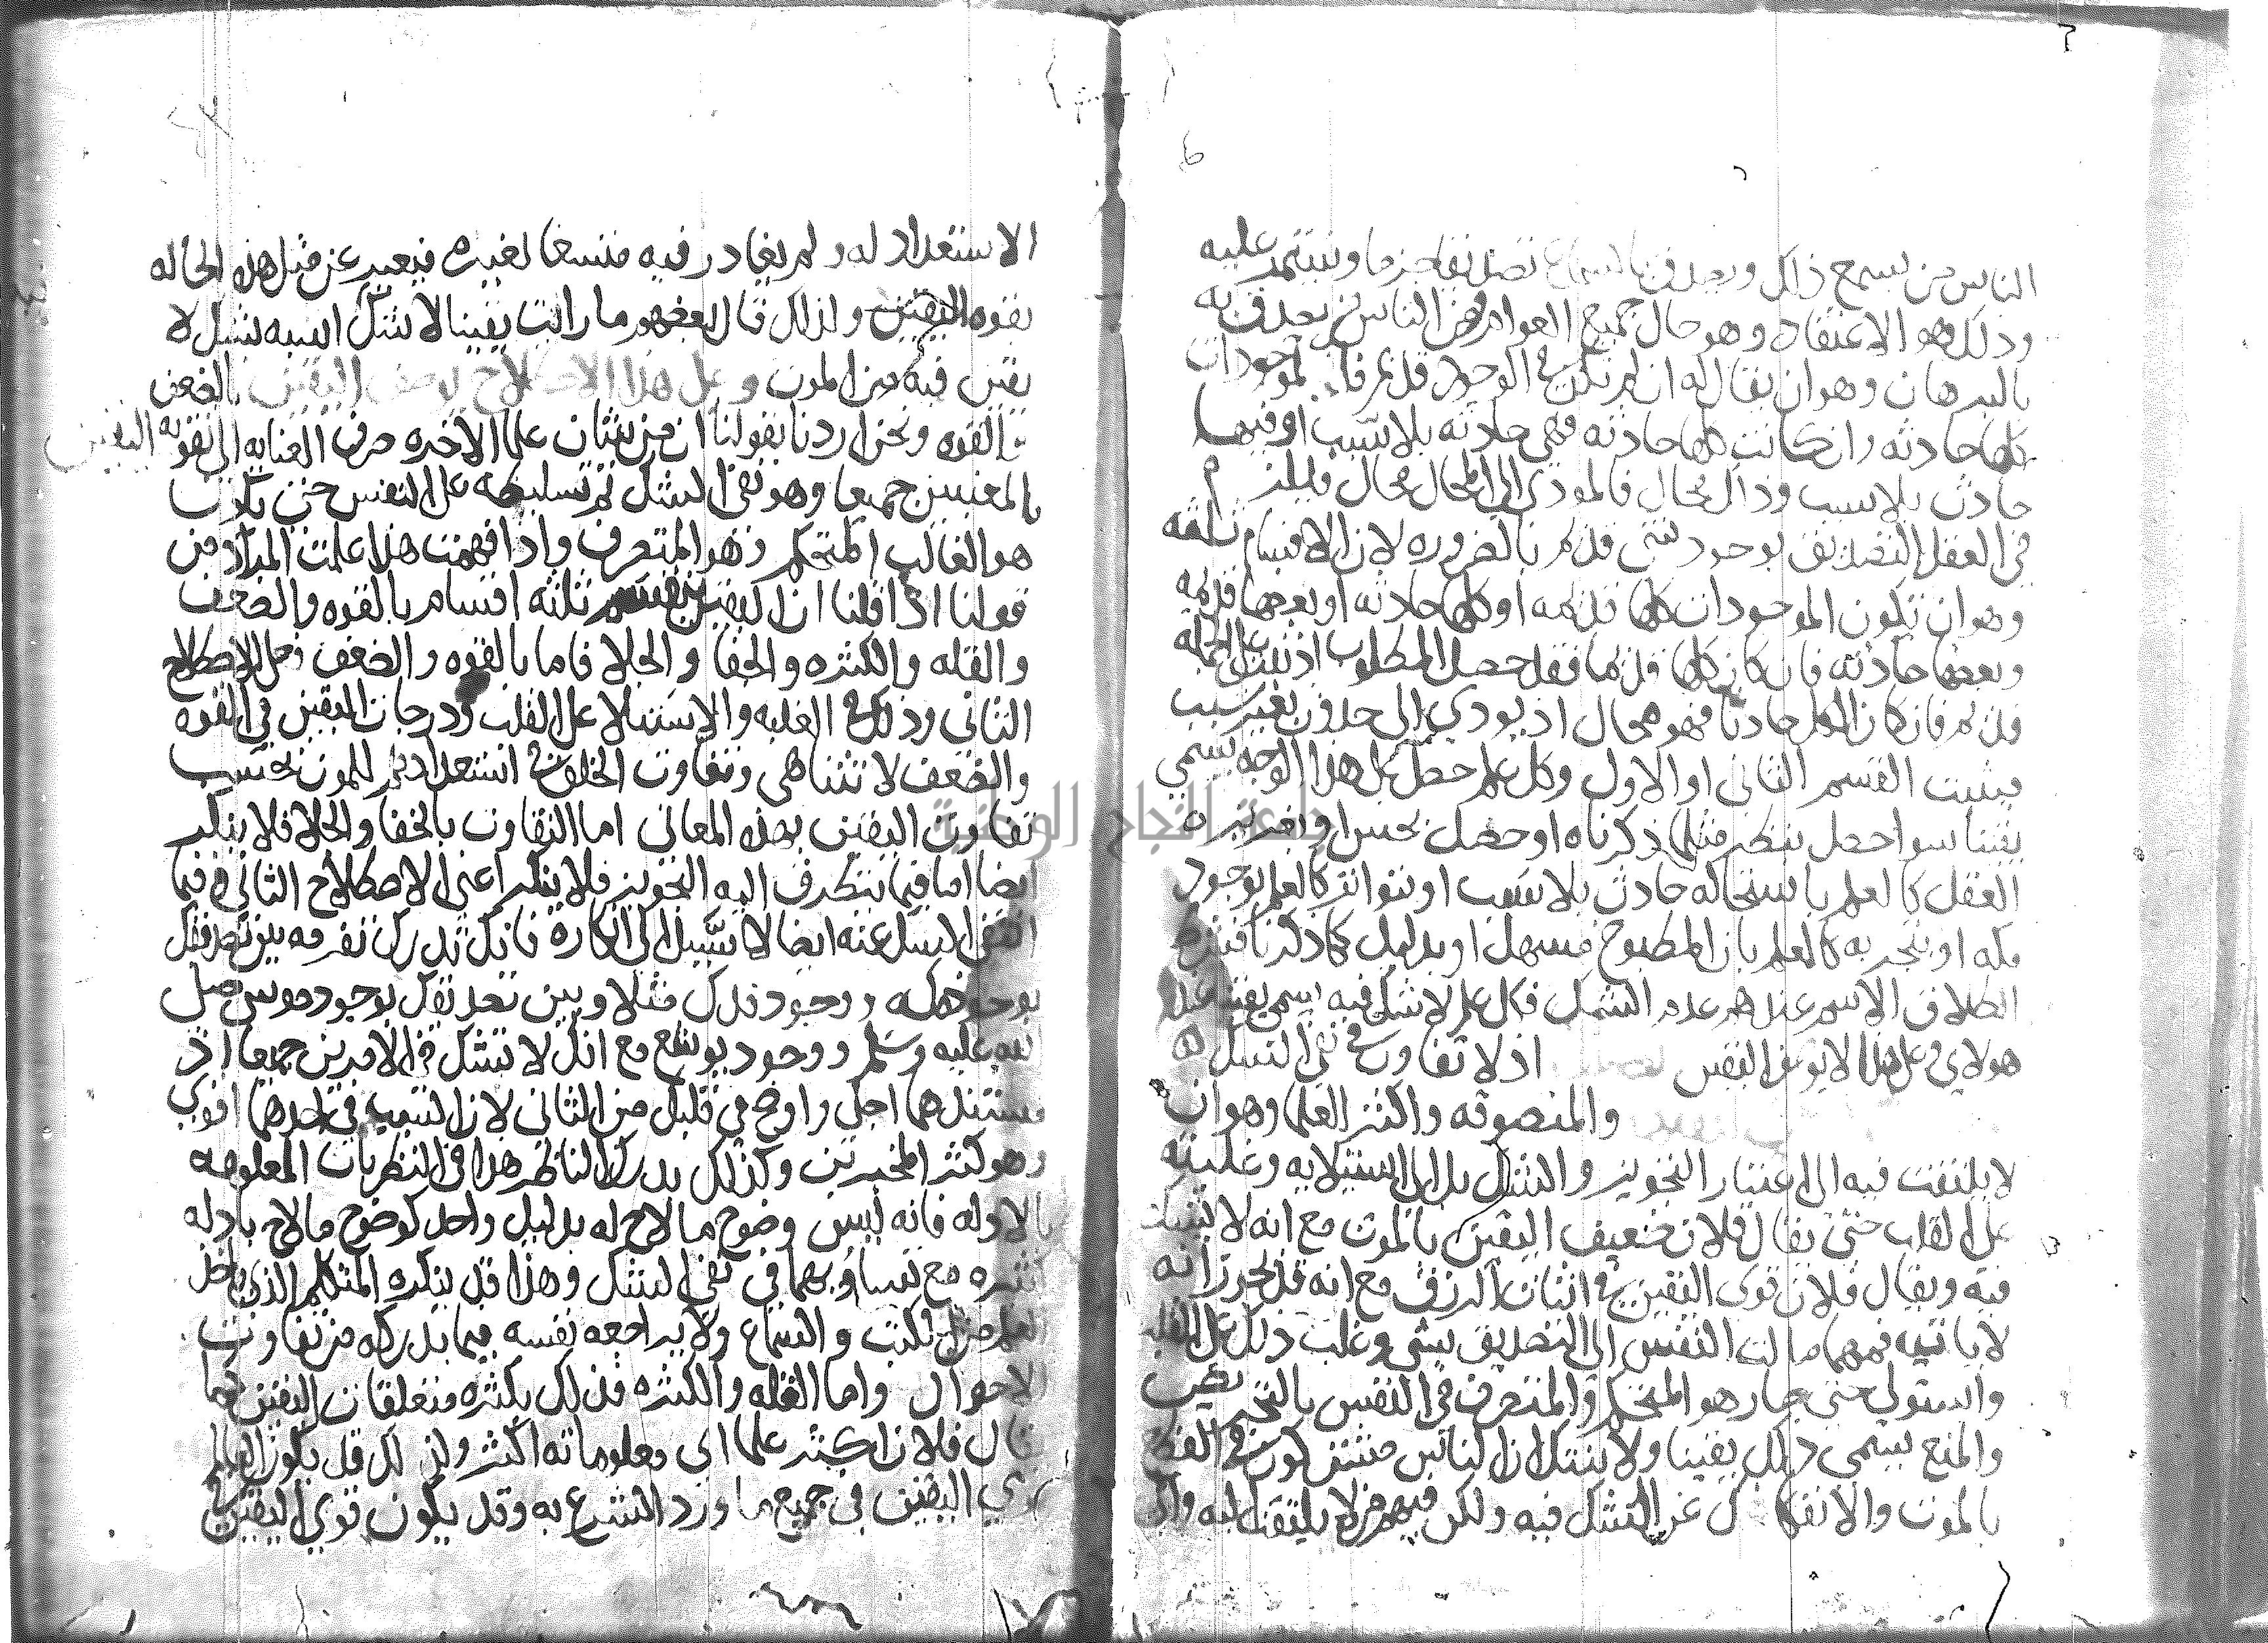 الناس من يسمع ذلك ويصدق بالسماع تصديقا جزما ويستمر عليه
وذلك هو الاعتقاد وهو حال جميع العوام ومن الناس من يصدق به
بالبرهان وهو ان يقال له ان لم يكن في الوجود قديم فالموجودات
كلها حادثه وان كانت كلها حادثه فهي حادثه بلا سبب او فيها
حادث بلا سبب وذلك محال فالمودي الى المحال محال فيلزم
في العقل التصديق بوجود شي قديم بالضروره لان الاقسام ثلثه
وهو ان تكون الموجودات كلها قديمه او كلها حادثه او بعضها قديمه
وبعضها حادثه فان كان كلها قديما فقد حصل المطلوب اذ ثبت على الجمله
قديم فان كان الكل حادثا فهو محال اذ يودي الى حدوث بغير سبب
فيثبت القسم الثاني او الاول وكل علم حصل على هذا الوجه يسمى
يقينا سوا حصل بنظر مثلما ذكرناه او حصل بحس او بغريزه
العقل كالعلم باستحاله حادث بلا سبب او بتواتر كالعلم بوجود
مكه او بتجربه كالعلم بان المطبوخ مسهل او بدليل كما ذكرنا فشرط
اطلاق الاسم عندهم عدم الشك فكل علم لا شك فيه يسمى يقينا عند
هولاي وعلى هذا لا يوصف اليقين اذ لا تفاوت في نفي الشك
والمتصوفه واكثر العلما وهو ان
لا يلتفت فيه الى اعتبار التجويز والشك بل الى استيلايه وغلبته
على القلب حتى يقال فلان ضعيف اليقين بالموت مع انه لا يشك
فيه ويقال فلان قوي اليقين في اتيان الرزق مع انه قد يجوز انه
لا ياتيه فمهما مالت النفس الى التصديق بشي وغلب ذلك على القلب
واستولى حتى صار هو المتحكم والمتصرف في النفس بالتجويز
والمنع يسمى ذلك يقينا ولا يشك ان الناس مشتركون في القطع
بالموت والانفكاك عن الشك فيه ولكن فيهم من لا يلتفت اليه ولا
الاستعداد له ولم يغادر فيه متسعا لغيره فيعبر عن مثل هذه الحاله
بقوه اليقين ولذلك قال بعضهم ما رايت يقينا لا شك اشبه بشك لا
يقين فيه من الموت وعلى هذا الاصطلاح يوصف اليقين بالضعف
والقوه ونحن اردنا بقولنا ان من شان علما الاخره صرف العنايه الى تقويه اليقين
بالمعنيين جميعا وهو نفي الشك ثم تسليطه على النفس حتى يكون
هو الغالب المتحكم وهو المتصرف واذا فهمت هذا علمت المراد من
قولنا اذا قلنا ان اليقين ينقسم ثلثه اقسام بالقوه والضعف
والقله والكثره والخفا والجلا فاما بالقوه والضعف فعلى الاصطلاح
الثاني وذلك في الغلبه والاستيلا على القلب ودرجات اليقين في القوه
والضعف لا تتناهى وتفاوت الخلق في استعدادهم للموت بحسب
تفاوت اليقين بهذه المعاني اما التفاوت بالخفا والجلا فلا ينكر
ايضا اما فيما يتطرق اليه التجويز فلا ينكر اعني الاصطلاح الثاني وفيما
انتفى الشك عنه ايضا لا سبيل الى انكاره فانك تدرك تفرقه بين تصديقك
بوجود مكه ووجود فدك مثلا وبين تصديقك بوجود موسى صلى
الله عليه وسلم ووجود يوشع مع انك لا تشك في الامرين جميعا اذ
مستندهما اجلى واوضح في قلبك من الثاني لان السبب في احدهما اقوى
وهو كثر المخبرين وكذلك يدرك الناظر هذا في النظريات المعلومه
بالادله فانه ليس وضوح ما لاح له بدليل واحد كوضوح ما لاح بادله
كثيره مع تساويهما في نفي الشك وهذا قد ينكره المتكلم الذي ياخذ
العلم من الكتب والسماع ولا يراجع نفسه فيما يدركه من تفاوت
الاحوال واما القله والكثره فذلك بكثره متعلقات اليقين كما
يقال فلان اكثر علما اي معلوماته اكثر ولذلك قد يكون العالم
قوي اليقين في جميع ما ورد الشرع به وقد يكون قوي اليقين في
جامعة النجاح الوطنية